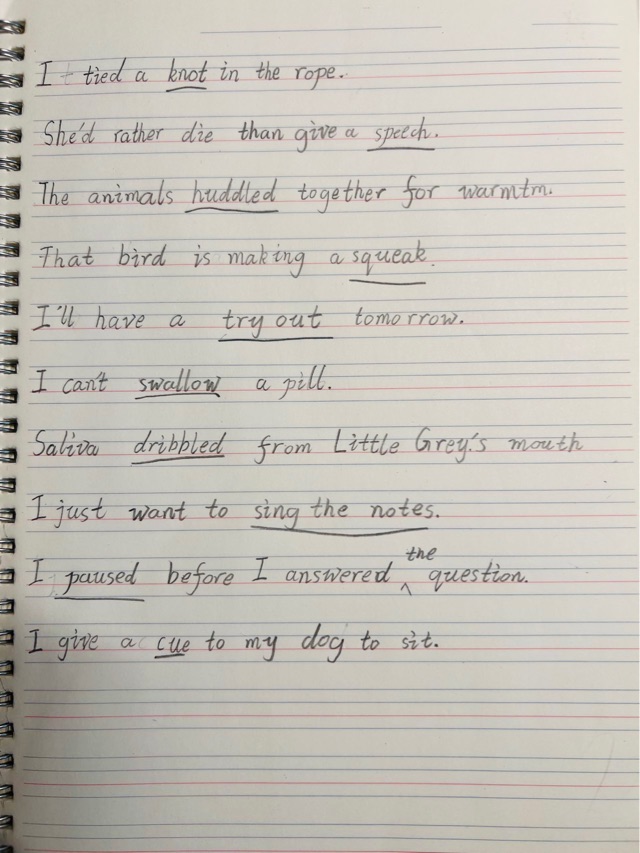 I tied a knot in the rope.
She'd rather die than give a speech.
The animals huddled together for warmtm.
That bird is making a squeak.
I'll have a try out tomorrow.
I can't swallow a pill.
Saliva dribbled from Little Grey's mouth
I just want to sing the notes.
I paused before I answered the question.
I give a cue to my dog to sit.